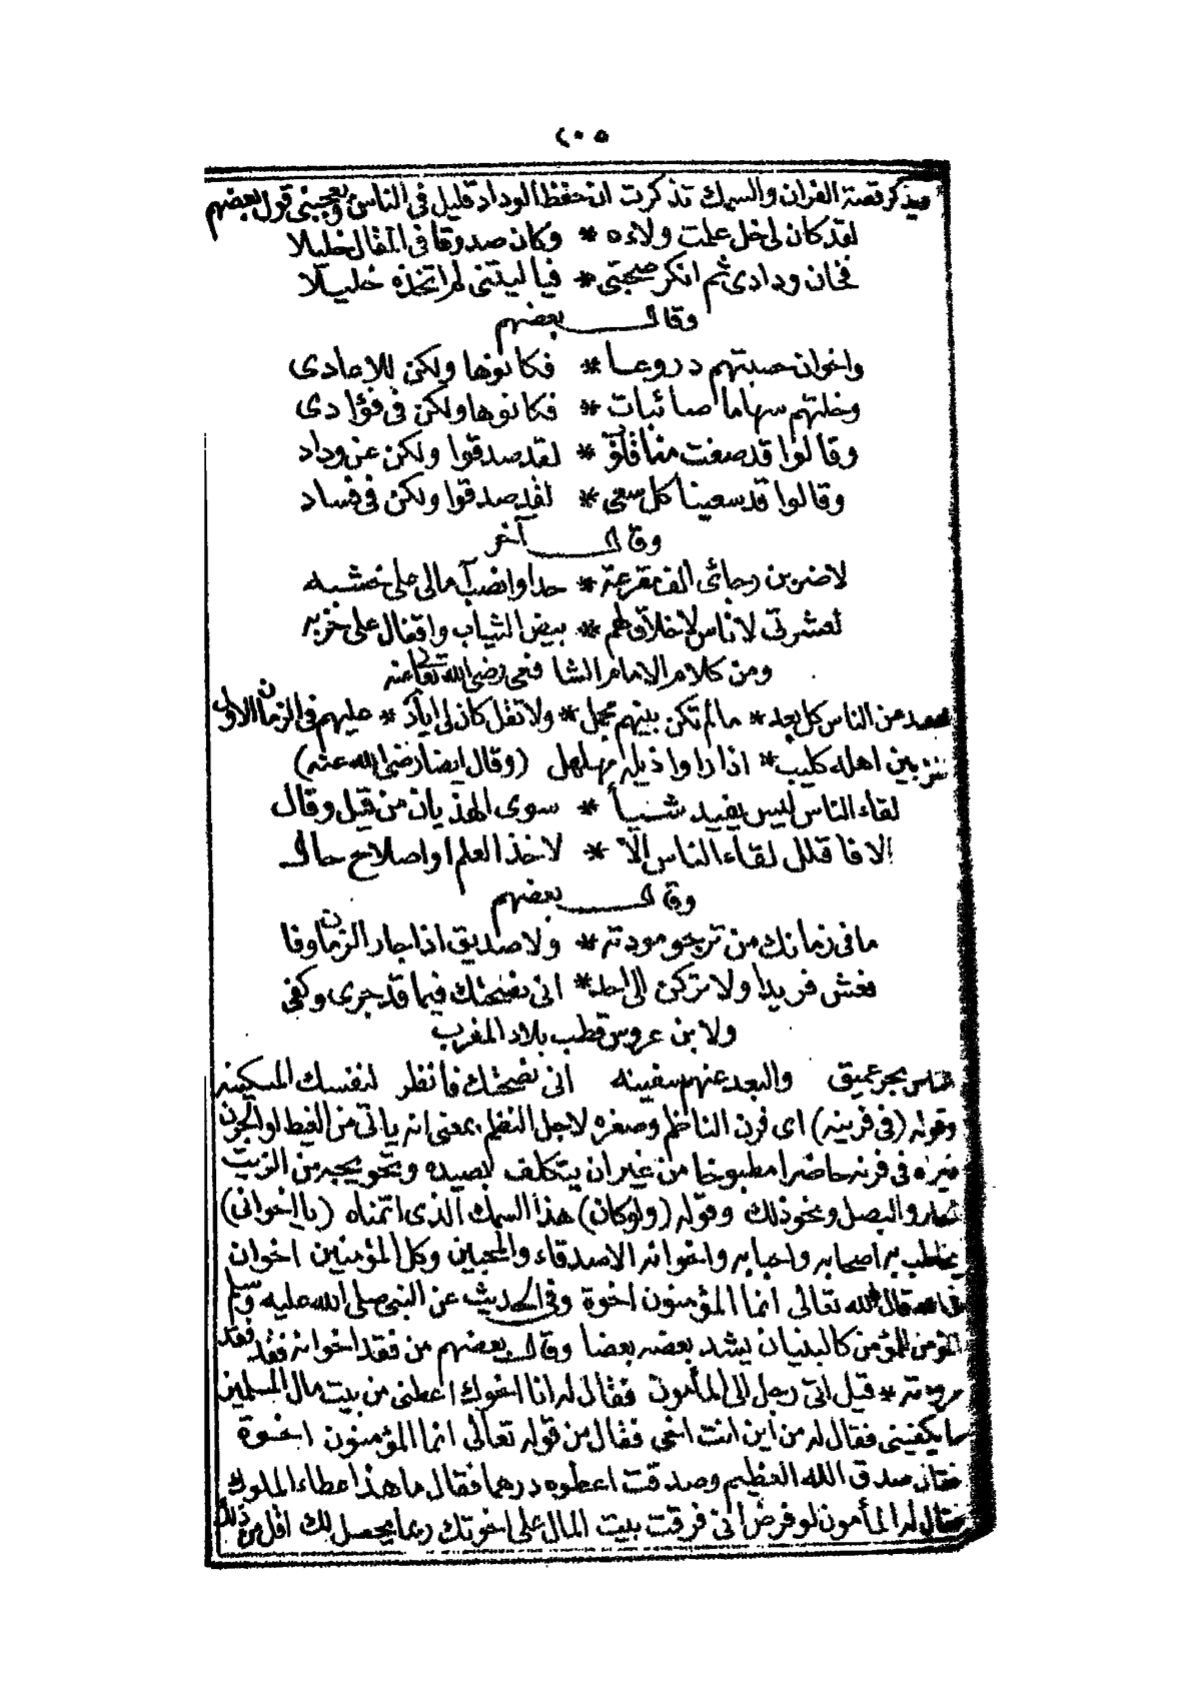 ٢٠٥
وبذكر قصة الفران والسمك تذكرت ان حفظ الوداد قليل فى الناس ويعجبنى قول بعضهم
لقد كان لى خل علمت ولاءه * وكان صدوقا فى المقال خليلا
فخان ودادى ثم انكر صحبتى * فيا ليتنى لم اتخذه خليلا
وقال بعضهم
واخوان حسبتهم دروعا * فكانوها ولكن للاعادى
وخلتهم سهاما صائبات * فكانوها ولكن فى فؤادى
وقالوا قد صفت منا قلوب * لقد صدقوا ولكن عن وداد
وقالوا قد سعينا كل سعى * لقد صدقوا ولكن فى فساد
وقال آخر
لاضربن رجائى الف مقرعة * حدا وانصب آمالى على خشبه
لعشرتى لاناس لا خلاق لهم * بيض الثياب واقفال على خربه
ومن كلام الامام الشافعى رضى الله تعالى عنه
عن الناس كل بعد * ما لم تكن بينهم مجمل * ولا تقل كان لى اياد * عليهم فى الزمان الاول
بين اهله كليب * اذا راوا ذيله مهلهل (وقال ايضا رضى الله عنه)
لقاء الناس ليس يفيد شيأ * سوى الهذيان من قيل وقال
الا فاقلل لقاء الناس الا * لاخذ العلم او اصلاح حال
وقال بعضهم
ما فى زمانك من ترجو مودته * ولا صديق اذا جار الزمان وفا
فعش فريدا ولا تركن الى احد * انى نصحتك فيما قد جرى وكفى
ولابن عروس قطب بلاد المغرب
الناس بحر عميق والبعد عنهم سفينه انى نصحتك فانظر لنفسك المسكينه
وقوله (فى فرينه) اى فرن الناظم وصغره لاجل النظم بمعنى انه ياتى من الغيط او الجرن
يره فى فرنه حاضرا مطبوخا من غير ان يتكلف لصيده ونحو يجبه من الزيت
والبصل ونحو ذلك وقوله (ولو كان) هذا السمك الذى اتمناه (يا اخوانى)
يخاطب به اصحابه واحبابه واخوانه الاصدقاء والمحبين وكل المؤمنين اخوان
قال الله تعالى انما المؤمنون اخوة وفى الحديث عن النبى صلى الله عليه وسلم
المؤمن للمؤمن كالبنيان يشد بعضه بعضا وقال بعضهم من فقد اخوانه فقد فقد
مروته * قيل اتى رجل الى المأمون فقال له انا اخوك اعطنى من بيت مال المسلمين
ما يكفينى فقال له من اين انت اخى فقال من قوله تعالى انما المؤمنون اخوة
فقال صدق الله العظيم وصدقت اعطوه درهما فقال ما هذا عطاء الملوك
فقال له المأمون لو فرض انى فرقت بيت المال على اخوتك ربما يحصل لك اقل من ذلك